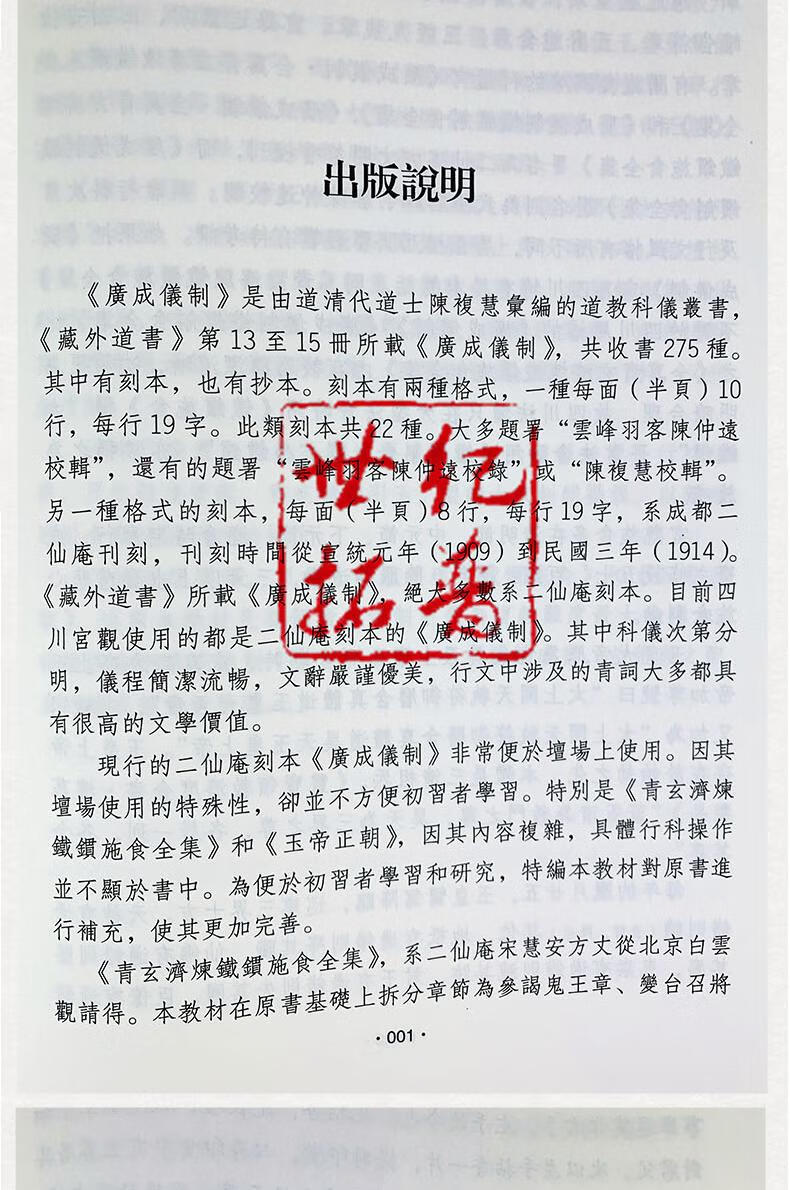 出版說明
《廣成儀制》是由道清代道士陳複慧彙編的道教科儀叢書，
《藏外道書》第 13 至 15 冊所載《廣成儀制》，共收書 275 種。
其中有刻本，也有抄本。刻本有兩種格式，一種每面（半頁）10
行，每行 19 字。此類刻本共 22 種。大多題署“雲峰羽客陳仲遠
校輯”，還有的題署“雲峰羽客陳仲遠校錄”或“陳複慧校輯”。
另一種格式的刻本，每面（半頁）8 行，每行 19 字，系成都二
仙庵刊刻，刊刻時間從宣統元年（1909）到民國三年（1914）。
《藏外道書》所載《廣成儀制》，絕大多數系二仙庵刻本。目前四
川宮觀使用的都是二仙庵刻本的《廣成儀制》。其中科儀次第分
明，儀程簡潔流暢，文辭嚴謹優美，行文中涉及的青詞大多都具
有很高的文學價值。
現行的二仙庵刻本《廣成儀制》非常便於壇場上使用。因其
壇場使用的特殊性，卻並不方便初習者學習。特別是《青玄濟煉
鐵鑵施食全集》和《玉帝正朝》，因其內容複雜，具體行科操作
並不顯於書中。為便於初習者學習和研究，特編本教材對原書進
行補充，使其更加完善。
《青玄濟煉鐵鑵施食全集》，系二仙庵宋慧安方丈從北京白雲
觀請得。本教材在原書基礎上拆分章節為參謁鬼王章、變台召將
·001·
世紀
拓普